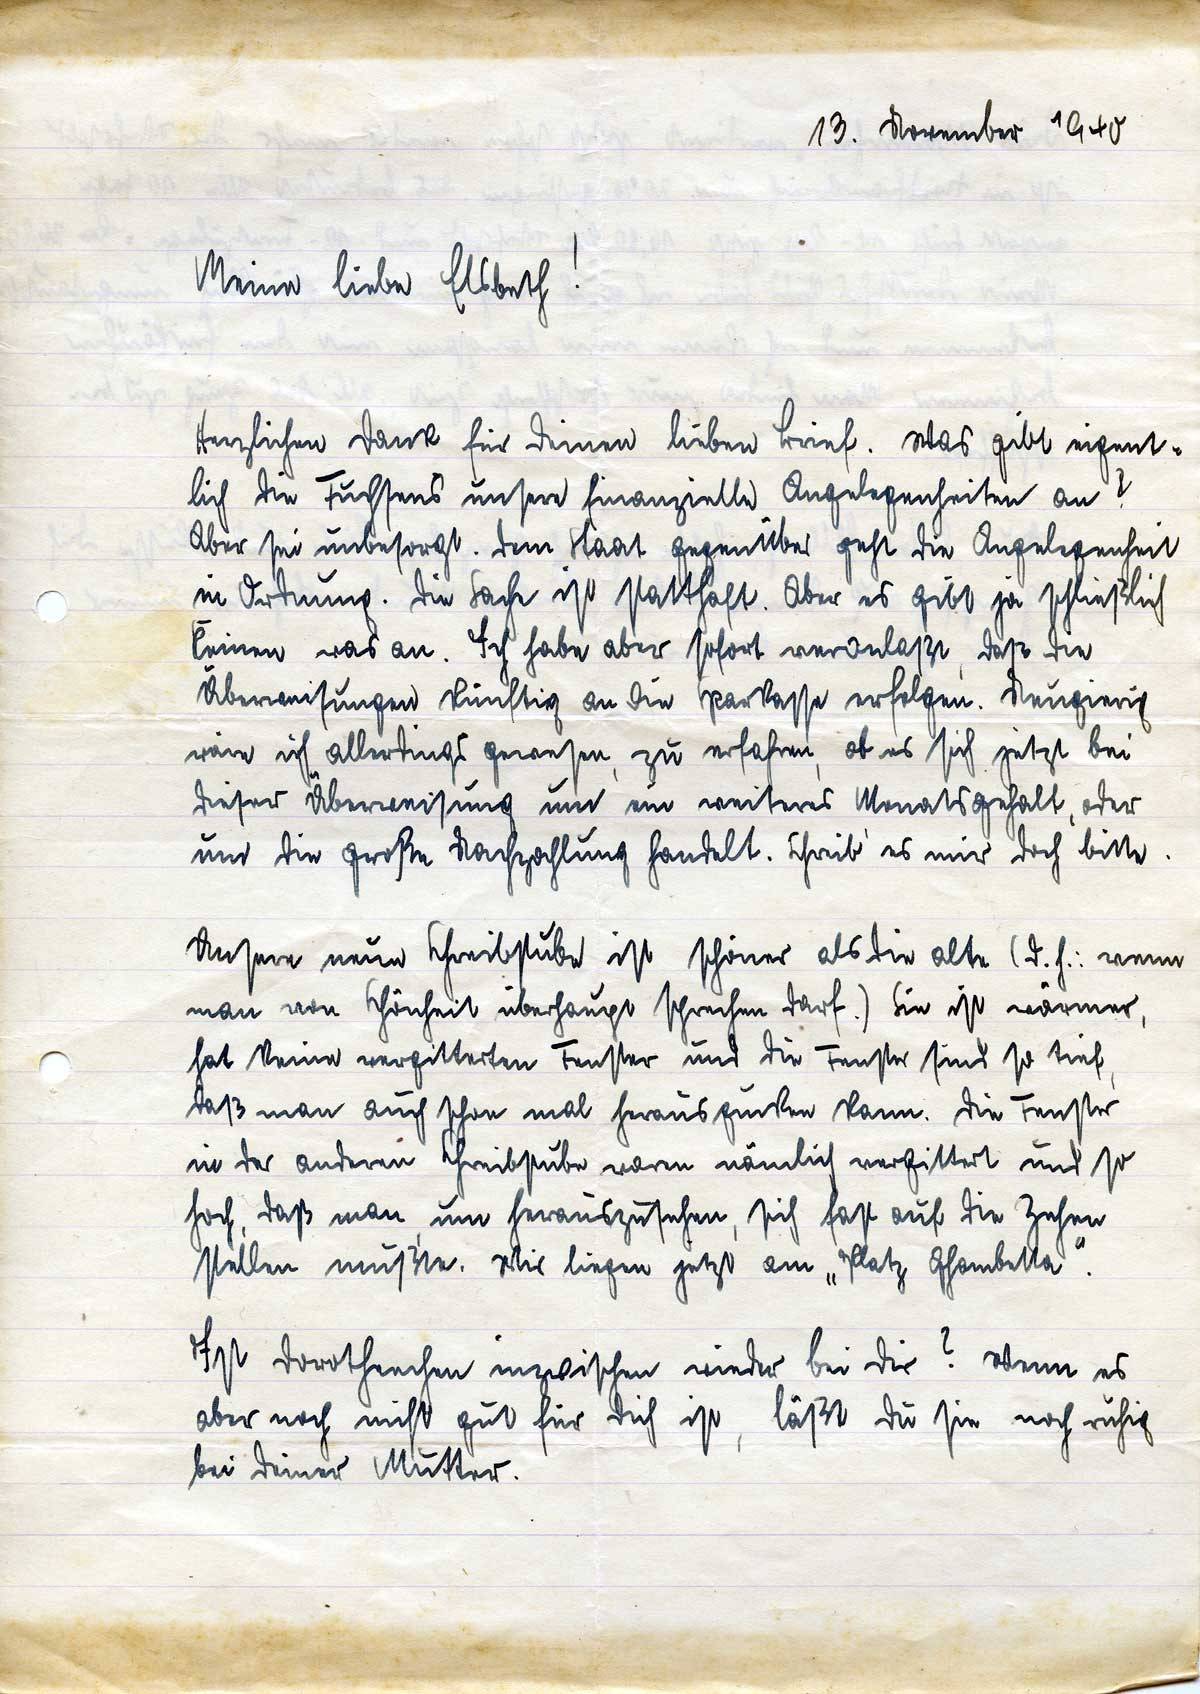 13. November 1940
Meine liebe Elsbeth!
Herzlichen Dank für Deinen lieben Brief. Was gibt eigent-
lich die Fuchsens unsere finanzielle Angelegenheiten an?
Aber sei unbesorgt. Dem Staat gegenüber geht die Angelegenheit
in Ordnung. Die Sache ist statthaft. Aber es gibt ja schließlich
keinen was an. Ich habe aber sofort veranlaßt, daß die
Überweisungen künftig an die Sparkasse erfolgen. Neugierig
wäre ich allerdings gewesen, zu erfahren, ob es sich jetzt bei
dieser Überweisung um ein weiteres Monatsgehalt, oder
um die große Nachzahlung handelt. Schreib' es mir doch bitte.
Unsere neue Schreibstube ist schöner als die alte (d.h.: wenn
man von Schönheit überhaupt sprechen darf.) Sie ist wärmer,
hat keine vergitterten Fenster und die Fenster sind so tief,
daß man auch schon mal herausgucken kann. Die Fenster
in der anderen Schreibstube waren nämlich vergittert und so
hoch, daß man, um herauszusehen, sich fast auf die Zehen
stellen mußte. Wir liegen jetzt am „Platz Ghambetta".
Ist Dorotheechen inzwischen wieder bei Dir? Wenn es
aber noch nicht gut für Dich ist, läßt Du sie noch ruhig
bei Deiner Mutter.